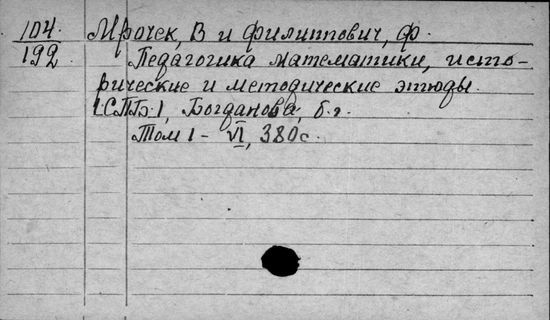 104. Мрочек, В и Филиппович, Ф.
192 Педагогика математики, исто-
рические и методические этюды.
[СПБ], Богданова, б.г.
Том I - VI, 380 с.